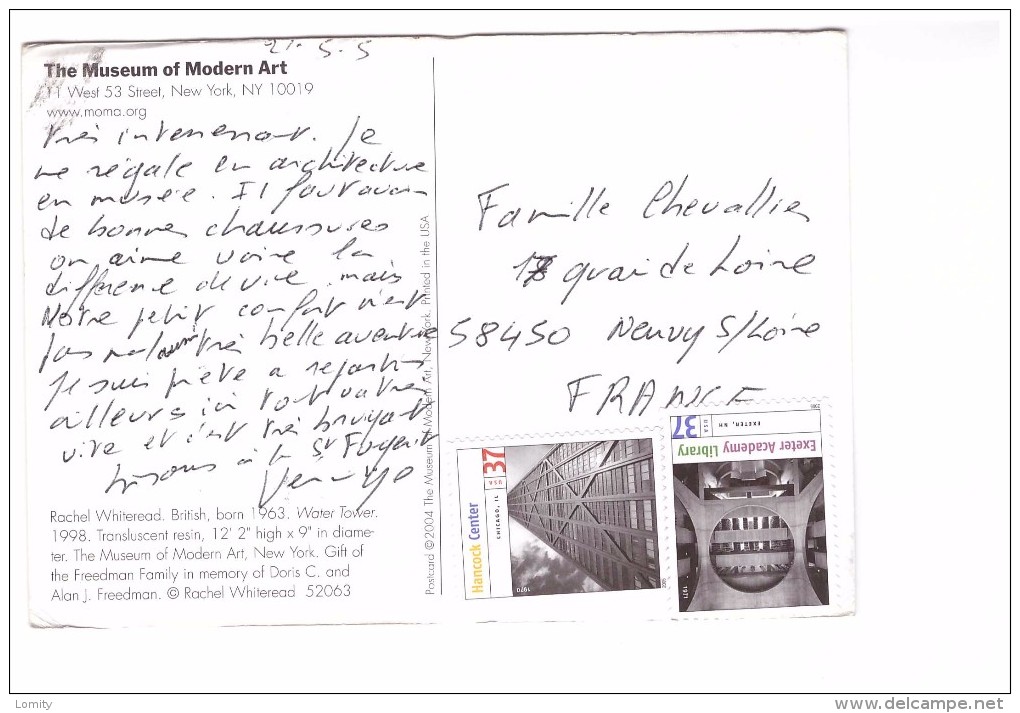 21.5.5
The Museum of Modern Art
11 West 53 Street, New York, NY 10019
www.moma.org
très interessant. Je
me régale en architecture
en musée. Il faut avoir
de bonnes chaussures
on aime voire la
différence de vie mais
Notre petit confort n'est
pas mal aussi très belle aventure
Je suis prète a repartir
ailleurs ici tout va très
vite et c'est très bruyant
bisous à la St
Rachel Whiteread. British, born 1963. Water Tower.
1998. Transluscent resin, 12' 2" high x 9" in diame-
ter. The Museum of Modern Art, New York. Gift of
the Freedman Family in memory of Doris C. and
Alan J. Freedman. © Rachel Whiteread 52063
Postcard © 2004 The Museum of Modern Art, New York. Printed in the USA
Famille Chevallier
18 quai de Loire
58450 Neuvy S/Loire
FRANCE
Hancock Center
CHICAGO, IL
USA
37
1970
Exeter Academy Library
EXETER, NH
USA
37
1971
Lomity
www.delcampe.net